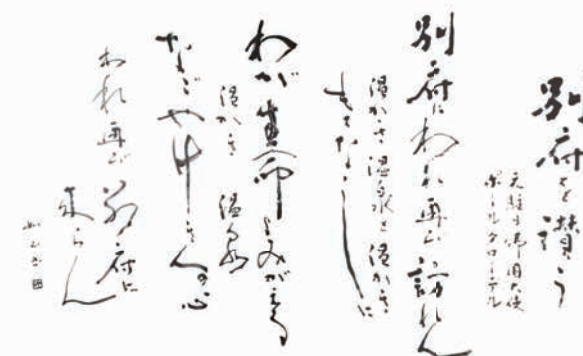 別府を讃う
元駐日仏国大使
ポールクローデル
別府にわれ再び訪れん
温かき温泉と温かき
もてなしに
わが生命よみがえる
温かき 温泉
なごやけき人の心
われ再び別府に
来らん